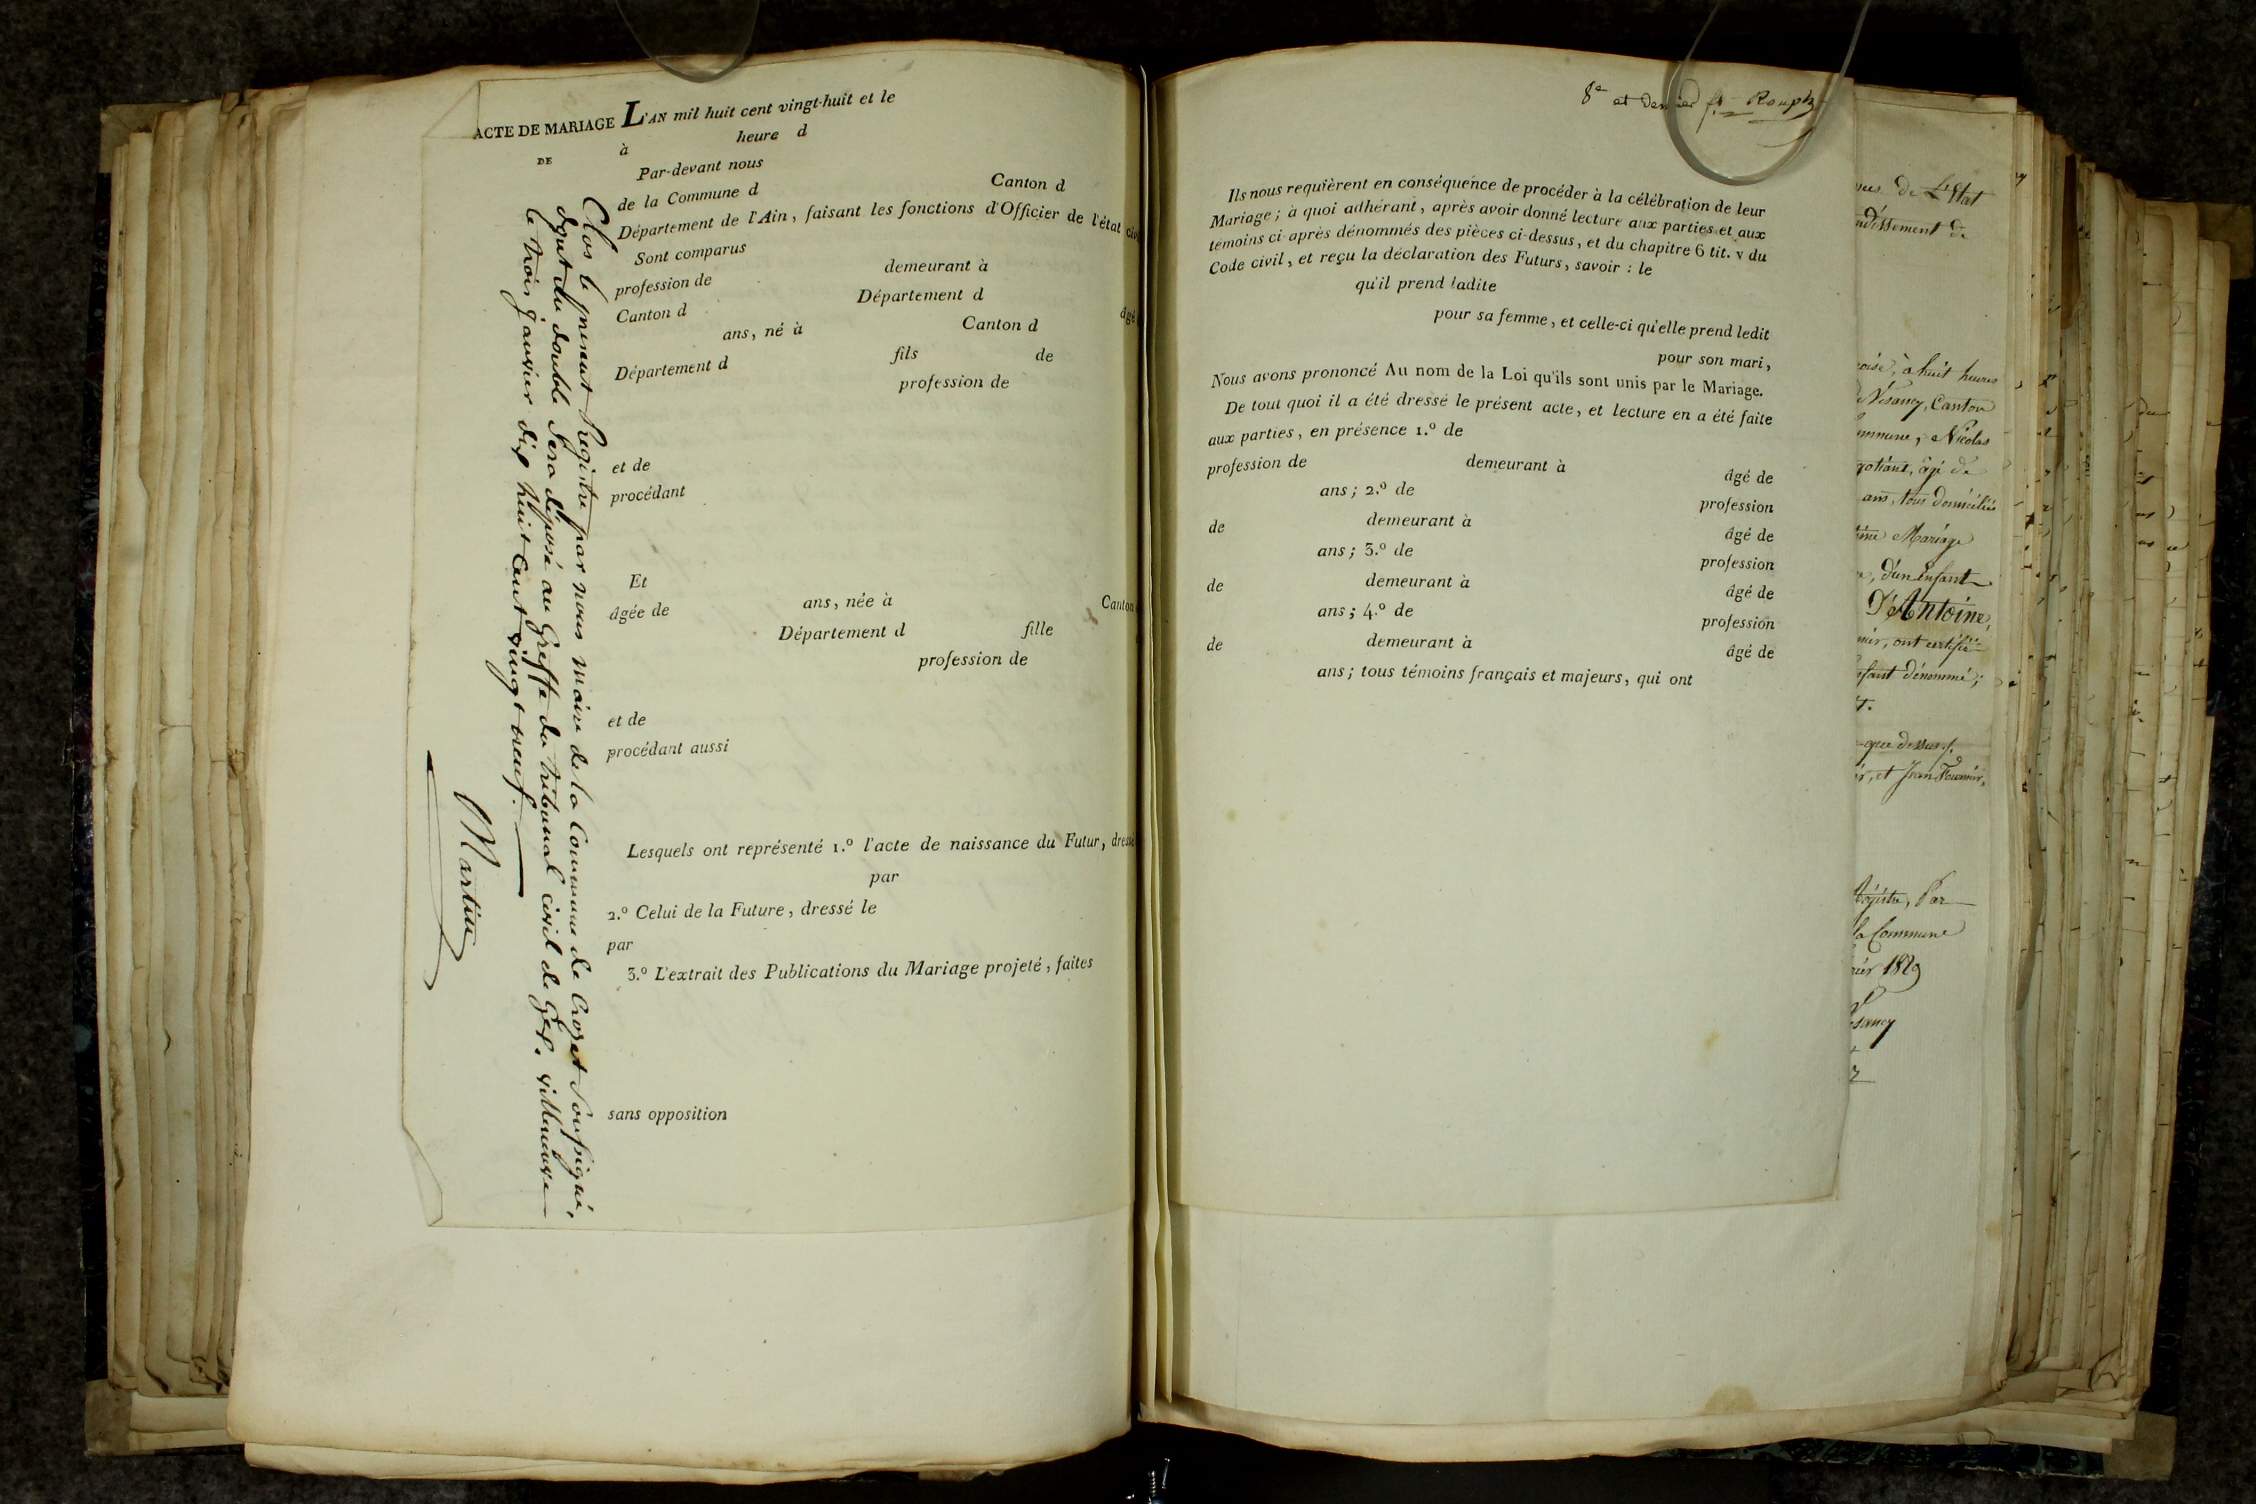 ACTE DE MARIAGE
DE
L'AN mil huit cent vingt-huit et le
à heure d
Par-devant nous
de la Commune d Canton d
Département de l'Ain, faisant les fonctions d'Officier de l'état civ
Sont comparus
profession de demeurant à
Canton d Département d âgé
ans, né à Canton d
Département d fils de
profession de
et de
procédant
Et
âgée de ans, née à Canton
Département d fille
profession de
et de
procédant aussi
Lesquels ont représenté 1.º l'acte de naissance du Futur, dressé
par
2.º Celui de la Future, dressé le
par
3.º L'extrait des Publications du Mariage projeté, faites
sans opposition
Clos le présent Registre par nous maire de la Commune de Crozet Soussigné,
dont du double Sera déposé au Greffe du tribunal Civil de Gex.
le trois janvier dix huit Cent vingt neuf.
Martin
8e et dernier ft Rouph
Ils nous requièrent en conséquence de procéder à la célébration de leur
Mariage; à quoi adhérant, après avoir donné lecture aux parties et aux
témoins ci-après dénommés des pièces ci-dessus, et du chapitre 6 tit. v du
Code civil, et reçu la déclaration des Futurs, savoir : le
qu'il prend ladite
pour sa femme, et celle-ci qu'elle prend ledit
pour son mari,
Nous avons prononcé Au nom de la Loi qu'ils sont unis par le Mariage.
De tout quoi il a été dressé le présent acte, et lecture en a été faite
aux parties, en présence 1.º de
profession de demeurant à âgé de
ans; 2.º de profession
de demeurant à âgé de
ans; 3.º de profession
de demeurant à âgé de
ans; 4.º de profession
de demeurant à âgé de
ans; tous témoins français et majeurs, qui ont
de L'Etat
ndissement de
à huit heures
Vésancy, Canton
ommune, Nicolas
gotiant, âgé de
ans, tous domiciliés
time Mariage
d'un Enfant
D'Antoine,
ont certifié
nfant dénommé;
que dessus.
et Jean Fournier,
Régistre, Par
la Commune
vier 1829
ésancy